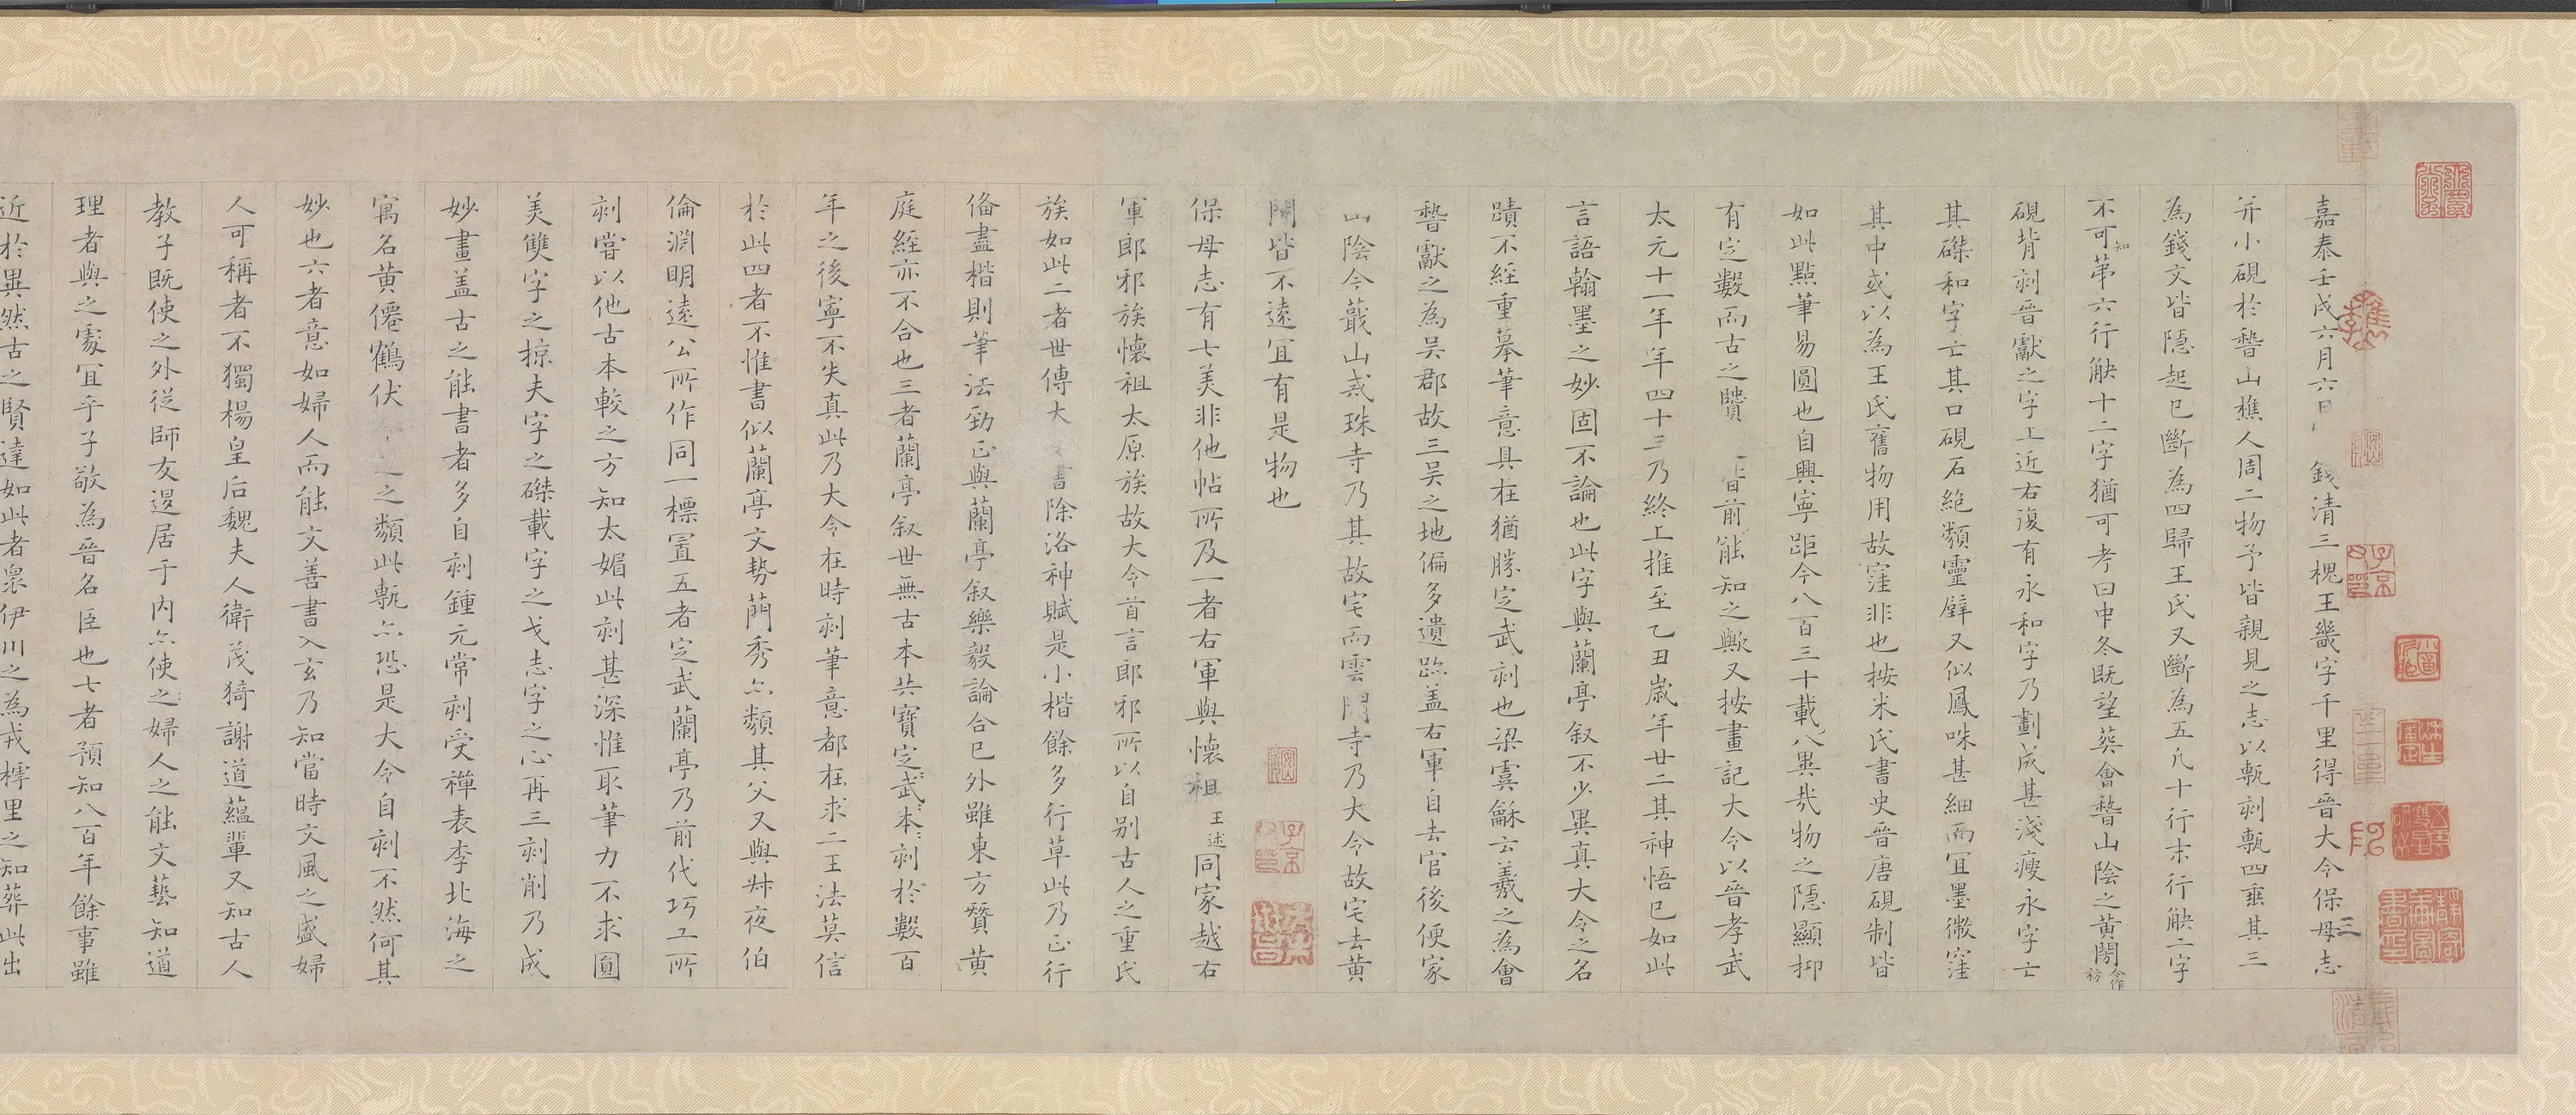 嘉泰壬戌六月六日錢清三槐王畿字千里得晉大令保母志
并小硯於稽山樵人周二物予皆親見之志以甎刻甎四垂其三
為錢文皆隱起已斷為四歸王氏又斷為五凡十行末行缺二字
不可知第六行缺十二字猶可考曰中冬既望葬會稽山陰之黃閍今作祊
硯背刻晉獻之字上近右復有永和字乃劃成甚淺瘦永字亡
其磔和字亡其口硯石絶類靈壁又似鳳咮甚細而宜墨微窪
其中或以為王氏舊物用故窪非也按米氏書史晉唐硯制皆
如此點筆易圓也自興寧距今八百三十載八異哉物之隱顯抑
有定數而古之賢 前能知之歟又按畫記大令以晉孝武
太元十一年年四十三乃終上推至乙丑歲年廿二其神悟已如此
言語翰墨之妙固不論也此字與蘭亭叙不少異真大令之名
蹟不經重摹筆意具在猶勝定武刻也梁虞龢云羲之為會
稽獻之為吳郡故三吳之地偏多遺跡盖右軍自去官後便家
山陰今蕺山戒珠寺乃其故宅而雲門寺乃大令故宅去黃
閍皆不遠宜有是物也
保母志有七美非他帖所及一者右軍與懷祖王述同家越右
軍郎邪族懷祖太原族故大令首言郎邪所以自别古人之重氏
族如此二者世傳大令書除洛神賦是小楷餘多行草此乃正行
俻盡楷則筆法勁正與蘭亭叙樂毅論合已外雖東方贊黃
庭經亦不合也三者蘭亭叙世無古本共寶定武本刻於數百
年之後寧不失真此乃大令在時刻筆意都在求二王法莫信
於此四者不惟書似蘭亭文勢蕳秀亦類其父又與叔夜伯
倫淵明遠公所作同一標置五者定武蘭亭乃前代巧工所
刻嘗以他古本較之方知太媚此刻甚深惟取筆力不求圓
美雙字之掠夫字之磔載字之戈志字之心再三刻削乃成
妙畫盖古之能書者多自刻鍾元常刻受禪表李北海之
寓名黃僊鶴伏之類此甎亦恐是大令自刻不然何其
妙也六者意如婦人而能文善書入玄乃知當時文風之盛婦
人可稱者不獨楊皇后魏夫人衛茂猗謝道蘊輩又知古人
教子既使之外從師友退居于内亦使之婦人之能文藝知道
理者與之處宜乎子敬為晉名臣也七者預知八百年餘事雖
近於異然古之賢達如此者衆伊川之為戎樗里之知葬此出